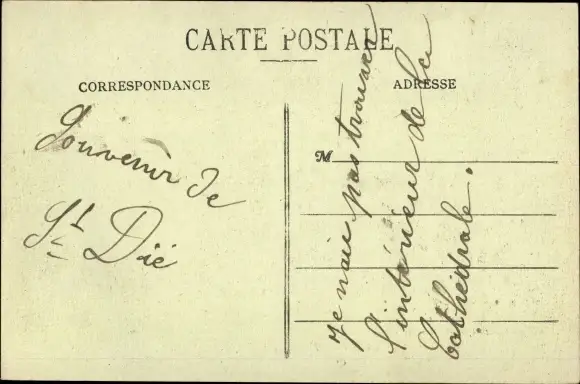 CARTE POSTALE
CORRESPONDANCE
ADRESSE
Souvenir de
St Dié
M
Je n'ais pas trouver
l'intérieur de la
Cathédrale.